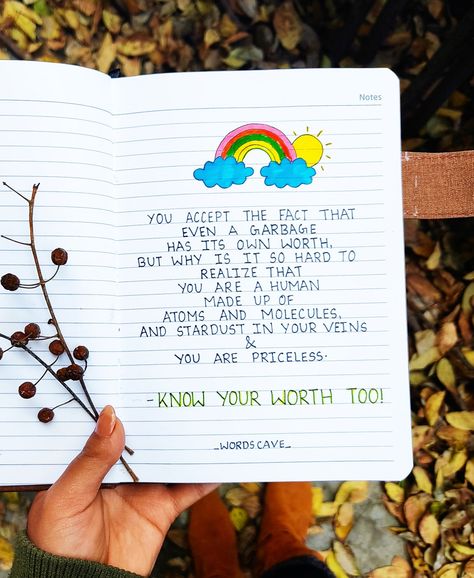 Notes
YOU ACCEPT THE FACT THAT
EVEN A GARBAGE
HAS ITS OWN WORTH,
BUT WHY IS IT SO HARD TO
REALIZE THAT
YOU ARE A HUMAN
MADE UP OF
ATOMS AND MOLECULES,
AND STARDUST IN YOUR VEINS
&
YOU ARE PRICELESS.
-KNOW YOUR WORTH TOO!
_WORDSCAVE_